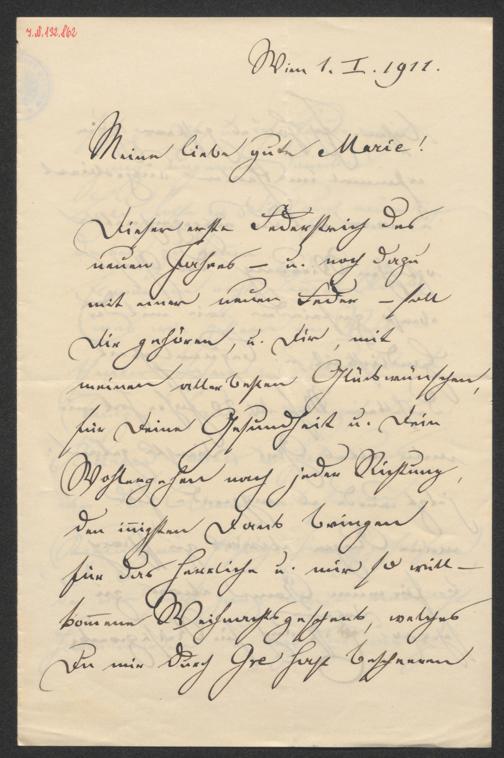 I.N. 132.862
Wien 1. I. 1911.
Meine liebe gute Marie!
Dieser erste Federstrich des
neuen Jahres – u. noch dazu
mit einer neuen Feder – soll
Dir gehören, u. Dir, mit
meinen allerbesten Glückwünschen,
für Deine Gesundheit u. Dein
Wohlergehen nach jeder Richtung,
den innigsten Dank bringen
für das herrliche u. mir so will-
kommene Weihnachtsgeschenk, welches
Du mir durch hast bescheeren